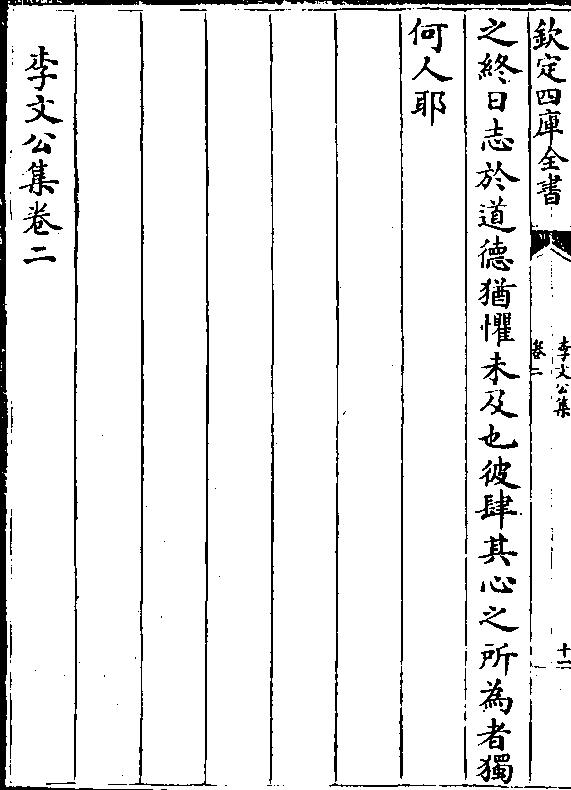 欽定四庫全書
李文公集
卷二
十二
之終日志於道德猶懼未及也彼肆其心之所為者獨
何人耶
李文公集卷二